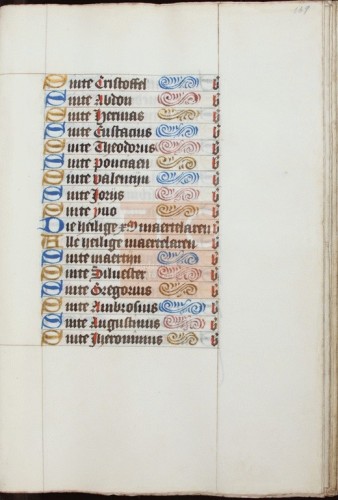 149
Sinte Cristoffel b
Sinte Abdon b
Sinte Hermas b
Sinte Eustacius b
Sinte Theodorus b
Sinte Ponciaen b
Sinte valentijn b
Sinte Joris b
Sinte yuo b
Die heilige xM maertelaren b
Alle heilige maertelaren b
Sinte maertijn b
Sinte Siluester b
Sinte Gregorius b
Sinte Ambrosius b
Sinte Augustinus b
Sinte Jheronimus b